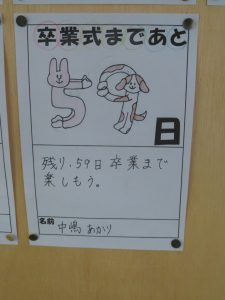 卒業式まであと
59
日
残り、59日 卒業まで
楽しもう。
名前 中嶋 あかり